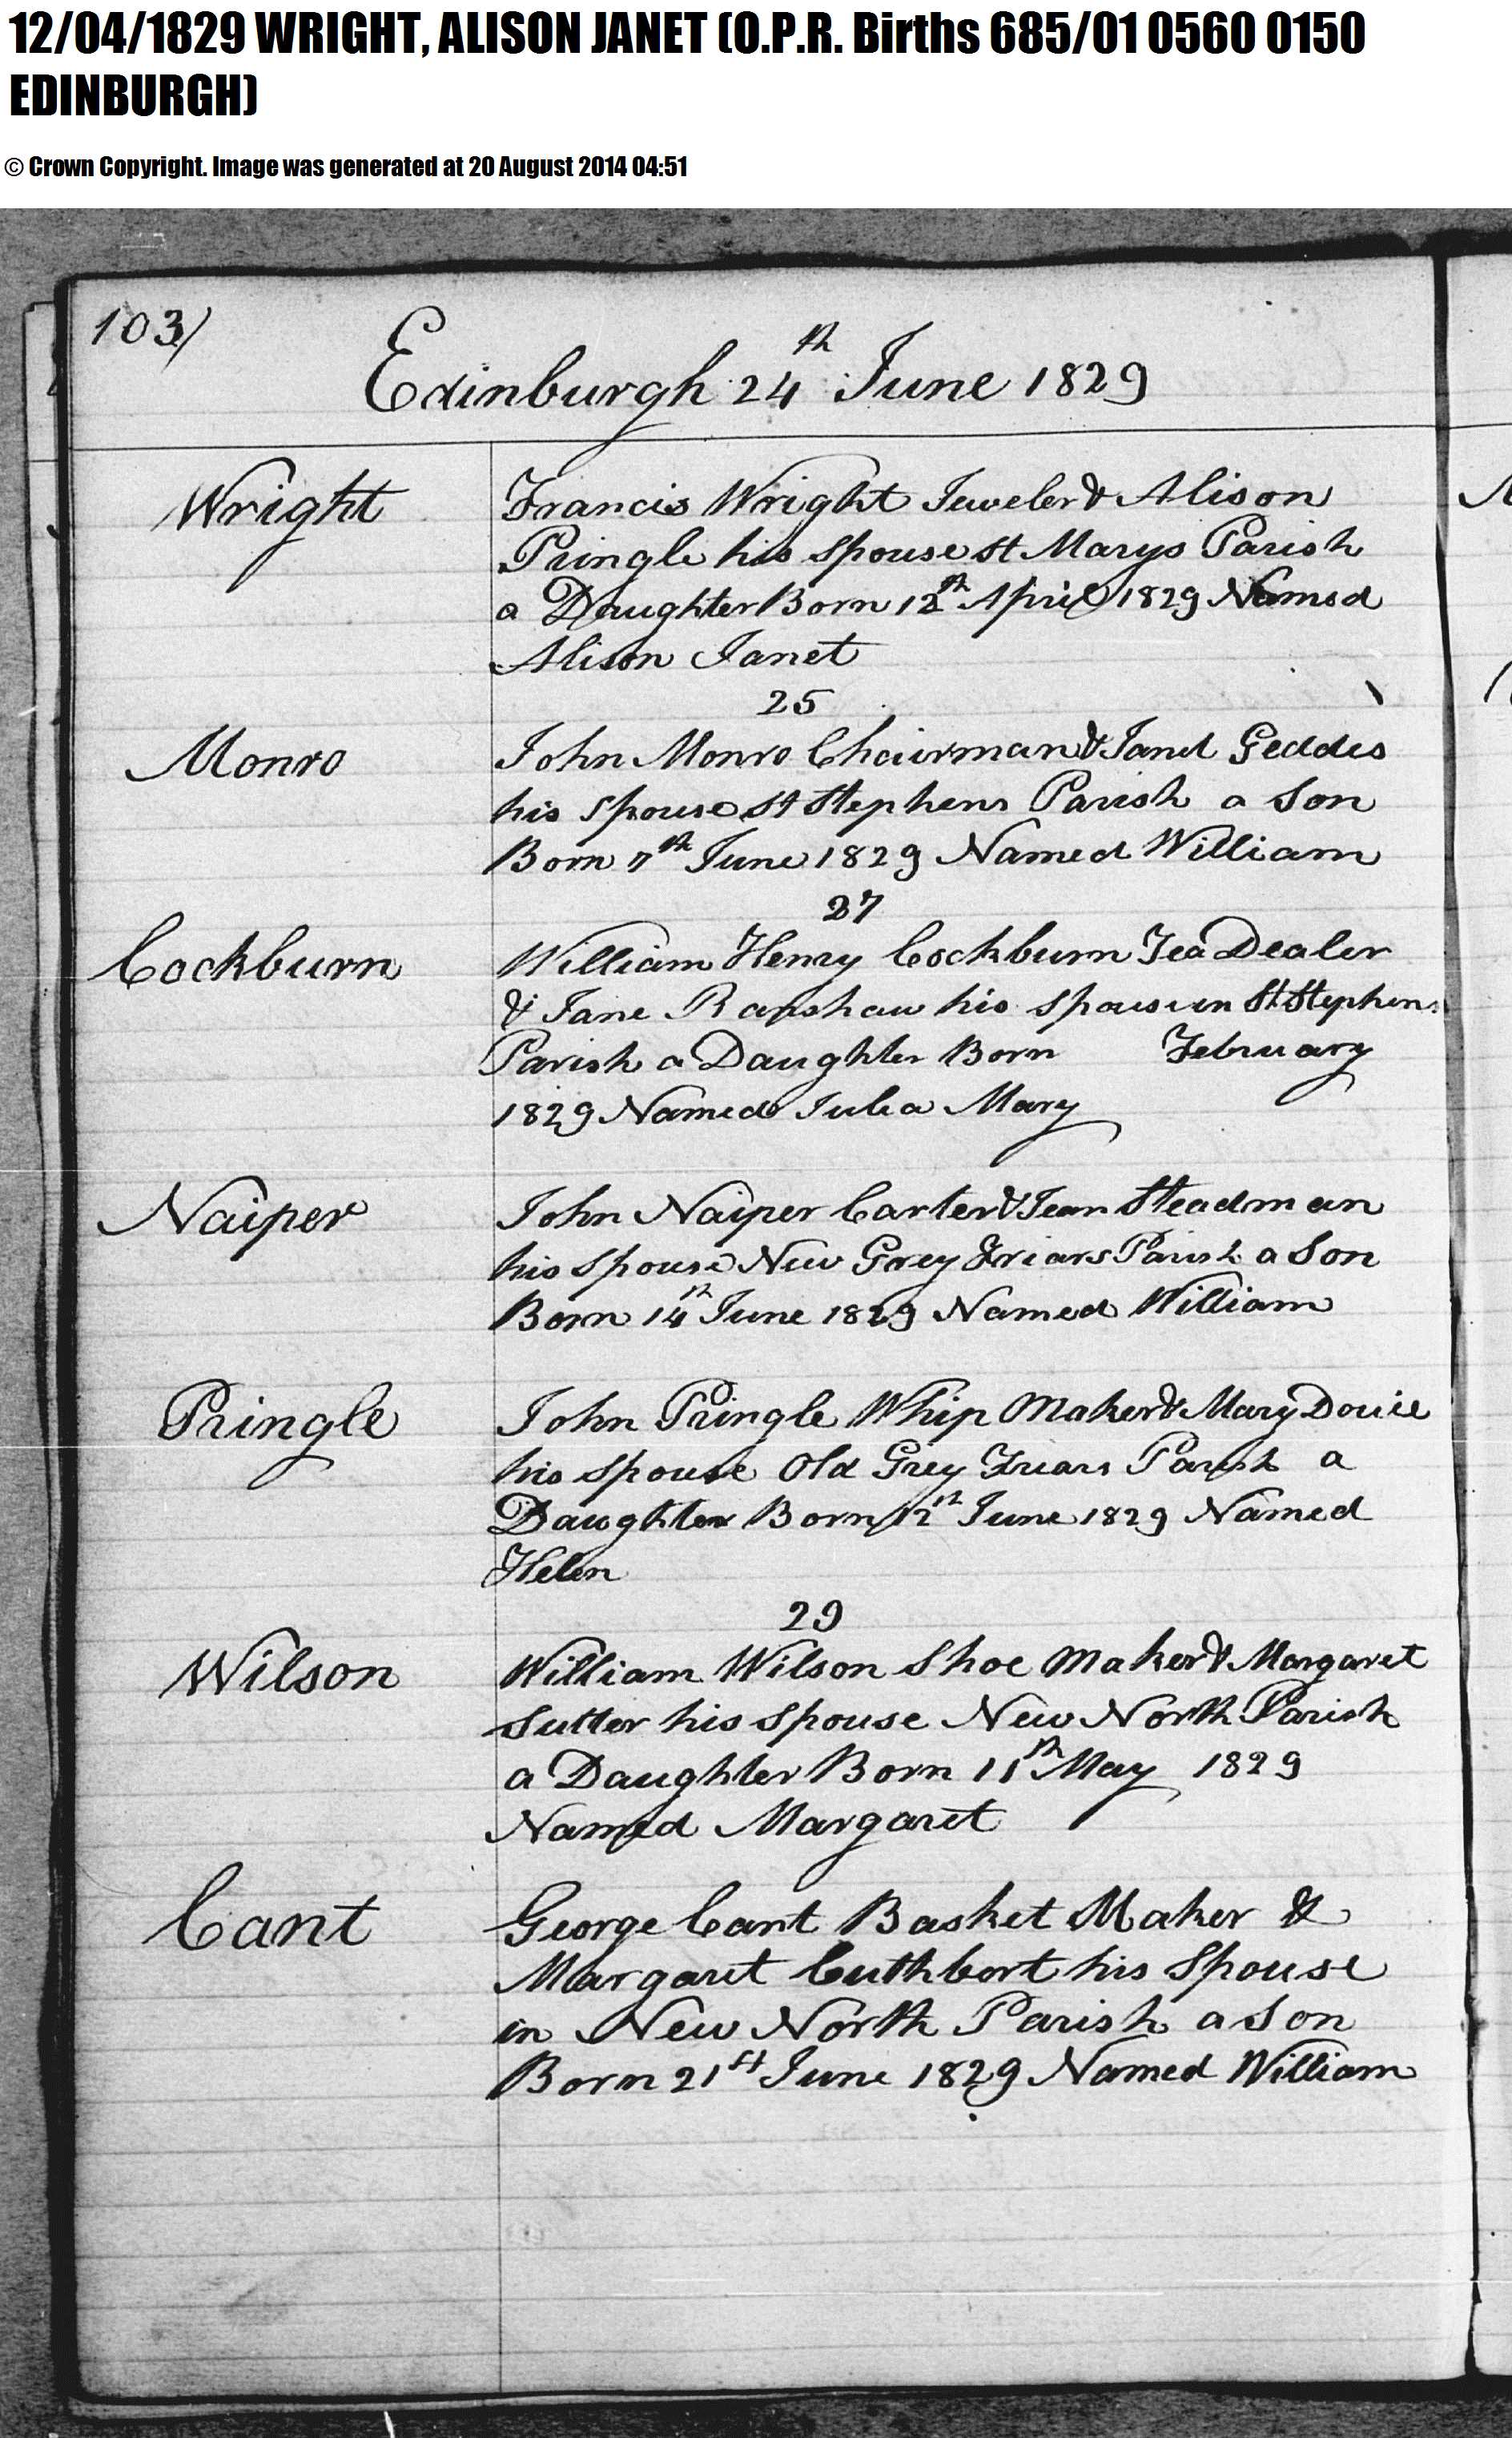 12/04/1829 WRIGHT, ALISON JANET (O.P.R. Births 685/01 0560 0150
EDINBURGH)
© Crown Copyright. Image was generated at 20 August 2014 04:51
103/
Edinburgh 24th June 1829
Wright
Francis Wright Jeweler & Alison
Pringle his spouse St Marys Parish
a Daughter Born 12th April 1829 Named
Alison Janet
25
Monro
John Monro Chairman & Janet Geddes
his Spouse St Stephens Parish a Son
Born 7th June 1829 Named William
27
Cockburn
William Henry Cockburn Tea Dealer
& Jane his Spouse in St Stephens
Parish a Daughter Born February
1829 Named Julia Mary
Naiper
John Naiper Carter & Jean Steadman
his Spouse New Grey Friars Parish a Son
Born 14th June 1829 Named William
Pringle
John Pringle Whip Maker & Mary
his Spouse Old Grey Friars Parish a
Daughter Born 12th June 1829 Named
Helen
29
Wilson
William Wilson Shoe Maker & Margaret
Sutter his Spouse New North Parish
a Daughter Born 11th May 1829
Named Margaret
Cant
George Cant Basket Maker &
Margaret Cuthbert his Spouse
in New North Parish a Son
Born 21st June 1829 Named William